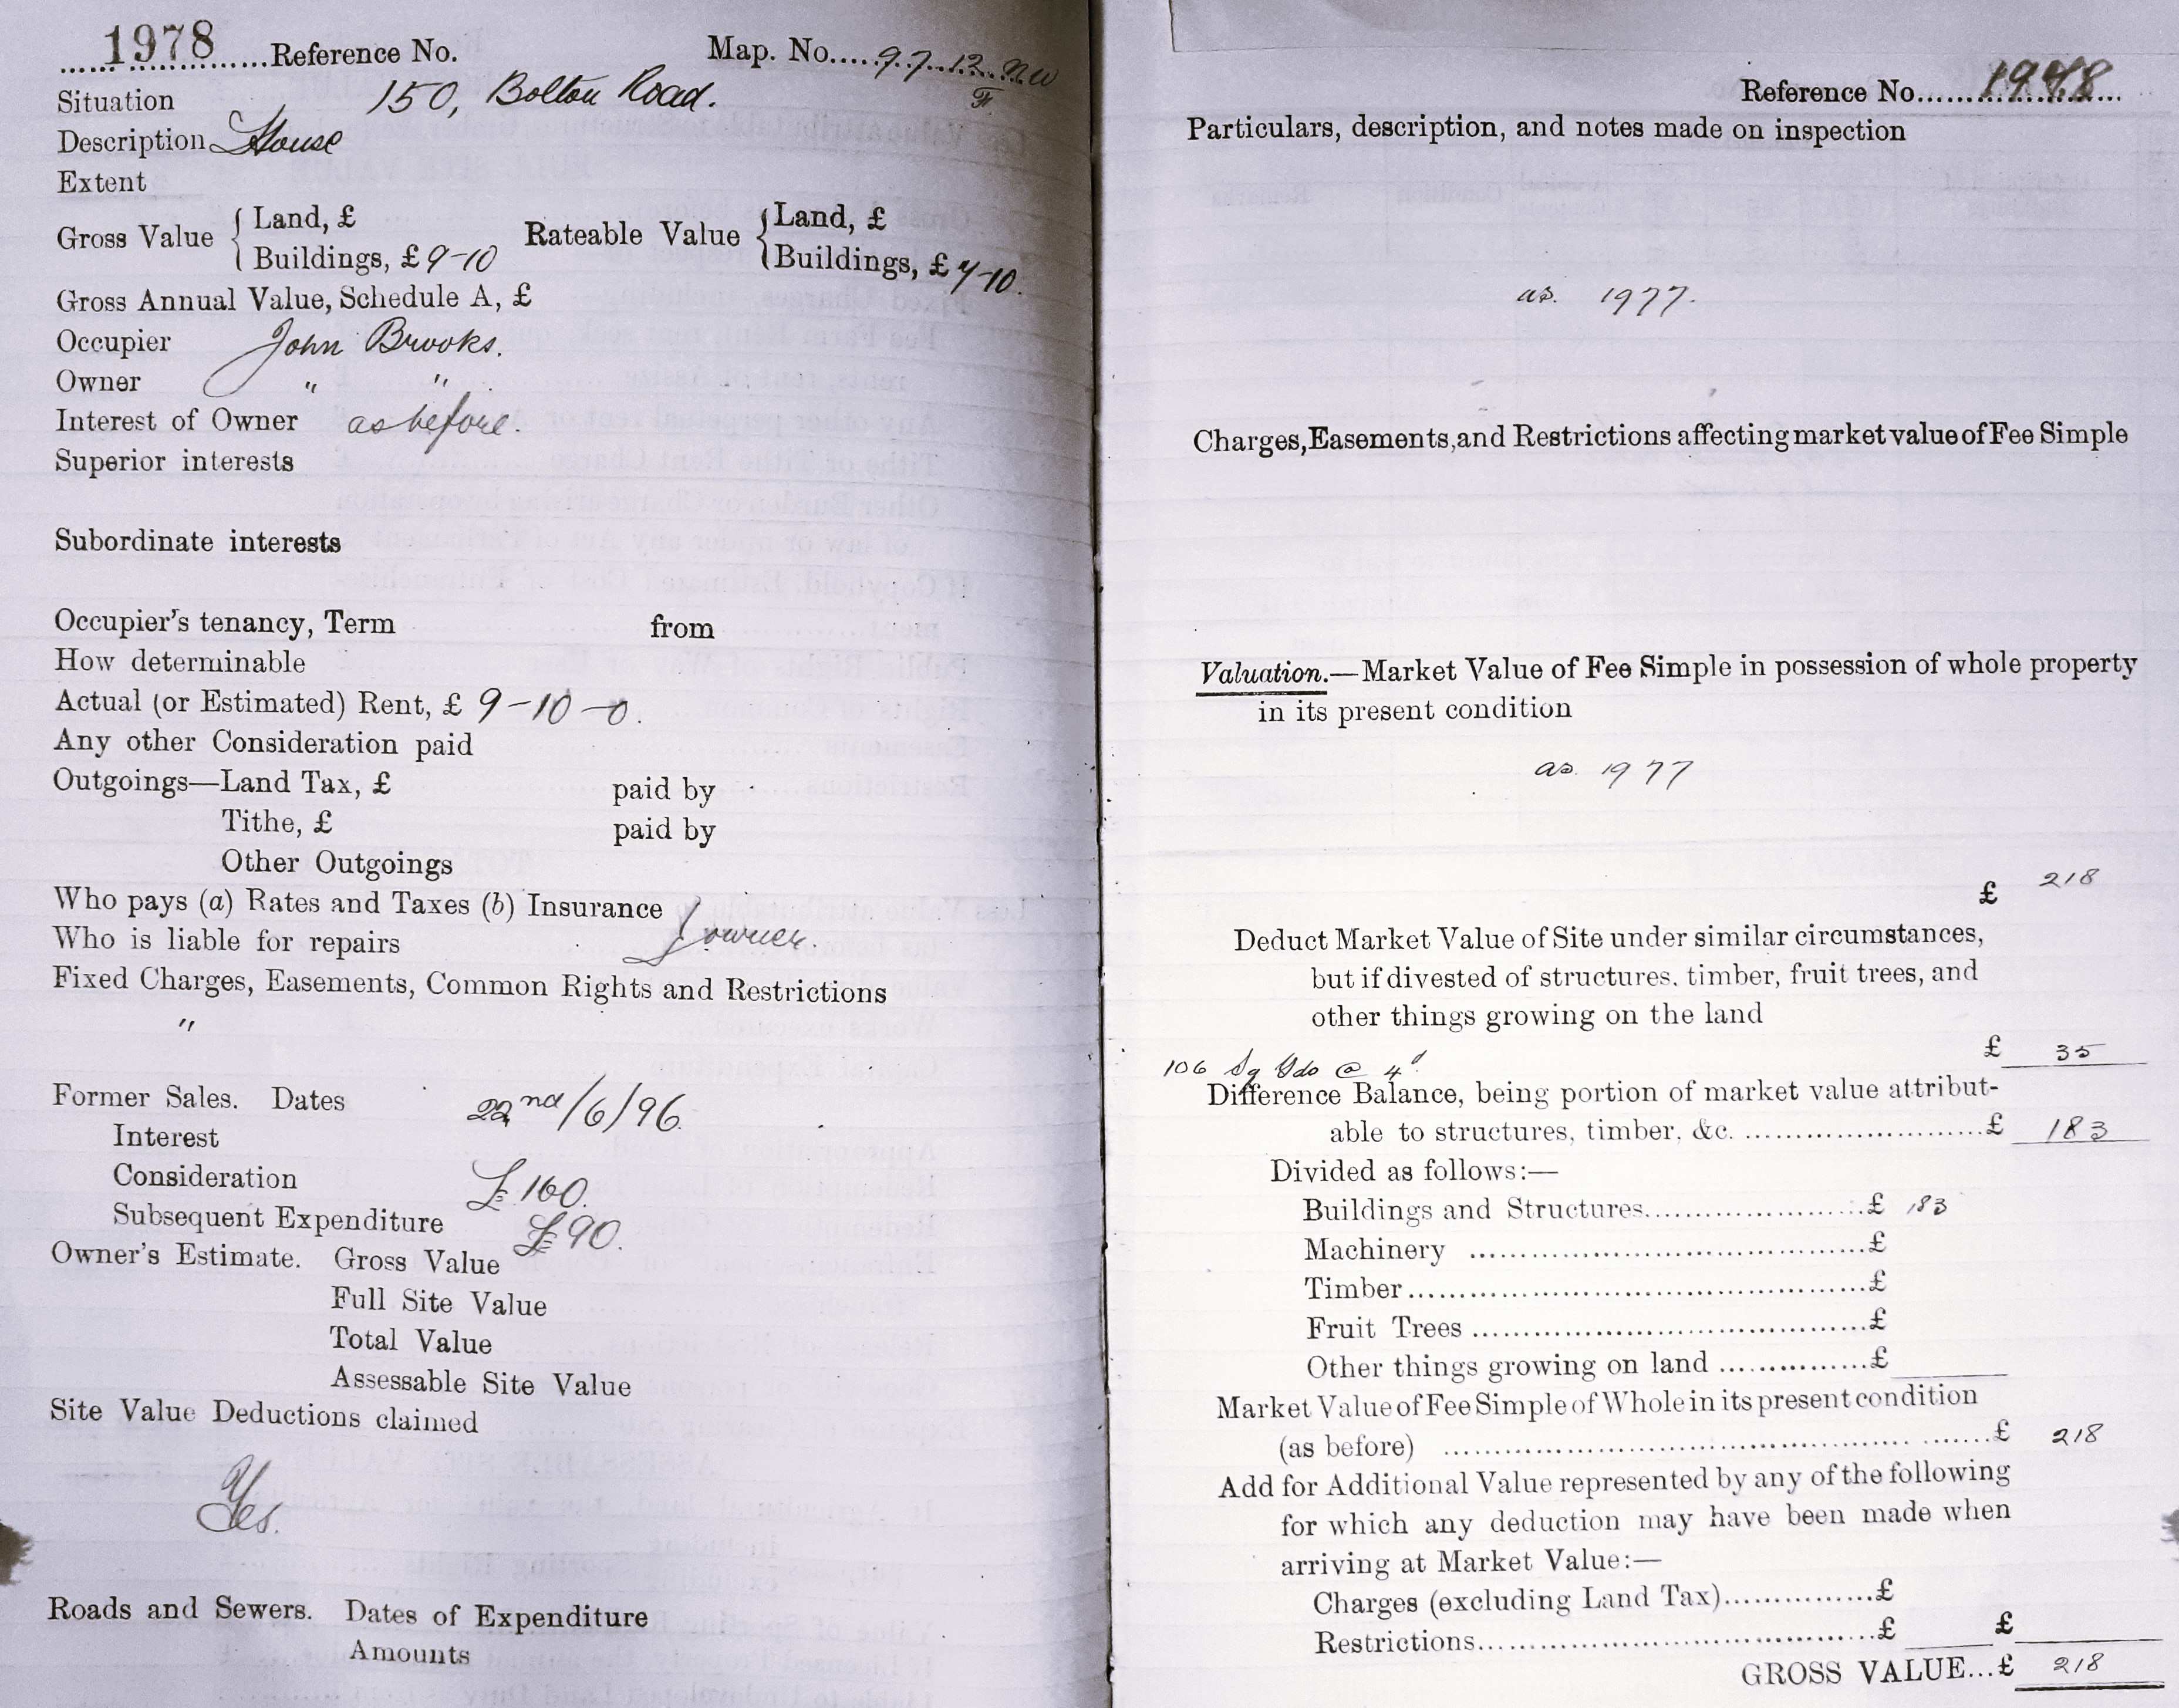 1978 Reference No. Map. No. 97.12 NW
F
Situation 150, Bolton Road.
Description House
Extent
Gross Value { Land, £
Buildings, £ 9-10
Rateable Value { Land, £
Buildings, £ 7-10.
Gross Annual Value, Schedule A, £
Occupier John Brooks.
Owner " " .
Interest of Owner as before.
Superior interests
Subordinate interests
Occupier's tenancy, Term from
How determinable
Actual (or Estimated) Rent, £ 9-10-0.
Any other Consideration paid
Outgoings—Land Tax, £ paid by
Tithe, £ paid by
Other Outgoings
Who pays (a) Rates and Taxes (b) Insurance
Who is liable for repairs } owner.
Fixed Charges, Easements, Common Rights and Restrictions
"
Former Sales. Dates 22nd/6/96.
Interest
Consideration £160.
Subsequent Expenditure £90.
Owner's Estimate. Gross Value
Full Site Value
Total Value
Assessable Site Value
Site Value Deductions claimed
Yes.
Roads and Sewers. Dates of Expenditure
Amounts
Reference No. 1978
Particulars, description, and notes made on inspection
as. 1977.
Charges, Easements, and Restrictions affecting market value of Fee Simple
Valuation.—Market Value of Fee Simple in possession of whole property
in its present condition
as. 1977
£ 218
Deduct Market Value of Site under similar circumstances,
but if divested of structures, timber, fruit trees, and
other things growing on the land
£ 35
106 Sq Yds @ 4d.
Difference Balance, being portion of market value attribut-
able to structures, timber, &c. £ 183
Divided as follows:—
Buildings and Structures £ 183
Machinery £
Timber £
Fruit Trees £
Other things growing on land £
Market Value of Fee Simple of Whole in its present condition
(as before) £ 218
Add for Additional Value represented by any of the following
for which any deduction may have been made when
arriving at Market Value:—
Charges (excluding Land Tax) £
Restrictions £ £
GROSS VALUE... £ 218